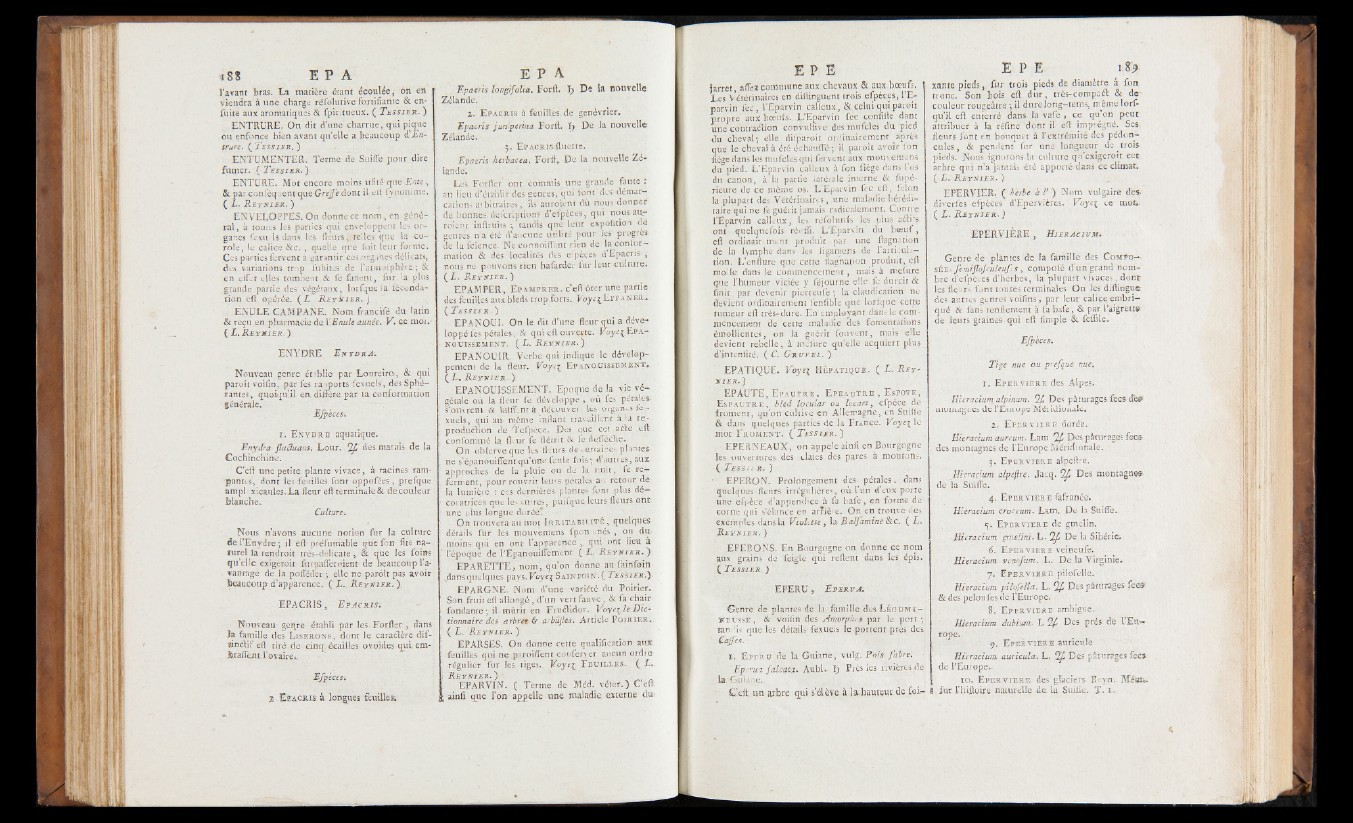 188 E P A
l'avant bras. La matière étant écoulée, on en
viendra à une charge résolutive fortifiante & en-
suite aux aromatiques & spiritueux. ( TESSIER. )
ENTRURE. On dit d'une charrue, qui pique
ou enfonce bien avant qu'elle a beaucoup d'En-
trure. ( TESSIER. )
ENTUMENTER. Terme de Suisse pour dire
fumer. ( TESSIER. )
ENTURE. Mot encore moins usité que Ente,
& par conséquent que Greffe dont il est synonime.
( L. REYNIER. )
ENVELOPPES. On donne ce nom, en géné-
ral, à toutes les parties qui enveloppent les or-
ganes sexuels dans les fleurs, telles que la co-
role, le calice &c., quelle que soit leur forme.
Ces parties servent à garantir ces organes délicats,
des variations trop subites de l'atmosphère; &
en effet elles tombent & se fanent, sur la plus
grande partie des végétaux, lorsque la féconda-
tion est opérée. ( L. REYNIER. )
ENULE CAMPANE. Nom francisé du latin
& reçu en pharmacie de l'Enule aunée. V. ce mot.
( L. REYNIER. )
ENYDRE ENYDRA.
Nouveau genre établie par Loureiro, & qui
paroît voisin, par ses rapports sexuels, des Sphé-
rantes, quoiqu'il en diffère par la conformation
générale.
Espèces.
1. ENYDRE aquatique.
Enydra fluctuans. Lour. ♃ des marais de la
Cochinchine.
C'est une petite plante vivace, à racines ram-
pantes, dont les feuilles sont opposées, presque
amplexicaules. La fleur est terminale & de couleur
blanche.
Culture.
Nous n'avons aucune notion sur la culture
de l'Enydre; il est présumable que son site na-
turel la rendroit très-délicate, & que les soins
qu'elle exigeroit surpasseroient de beaucoup l'a-
vantage de la posséder; elle ne paroît pas avoir
beaucoup d'apparence. ( L. REYNIER. )
EPACRIS, EPACRIS.
Nouveau genre établi par les Forster, dans
la famille des LISERONS, dont le caractère dis-
tinctif est tiré de cinq écailles ovoïdes qui em-
brassent l'ovaire.
Espèces.
1. EPACRIS à longues feuilles.
E P A
Epacris longifolia. Forst. ♄ De la nouvelle
Zélande.
2. EPACRIS à feuilles de genévrier.
Epacris juniperina Forst. ♄ De la nouvelle
Zélande.
3. EPACRIS fluette.
Epacris herbacea. Forst, De la nouvelle Zé-
lande.
Les Forster ont commis une grande faute:
au lieu d'établir des genres, qui sont des démar-
cations arbitraires, ils auroient dû nous donner
de bonnes descriptions d'espèces, qui nous au-
roient instruits; tandis que leur exposition de
genres n'a été d'aucune utilité pour les progrès
de la science. Ne connoissant rien de la confor-
mation & des localités des espèces d'Epacris,
nous ne pouvons rien hasarder sur leur culture.
( L. REYNIER. )
EPAMPER, EPAMPRER. c'est ôter une partie
des feuilles aux bleds trop forts. Voyez EFFANER.
( TESSIER. )
EPANOUI. On le dit d'une fleur qui a déve-
loppé ses pétales, & qui est ouverte. Voyez EPA-
NOUISSEMENT. ( L. REYNIER. )
EPANOUIR. Verbe qui indique le dévelop-
pement de la fleur. Voyez EPANOUISSEMENT.
( L. REYNIER. )
EPANOUISSEMENT. Epoque de la vie vé-
gétale où la fleur se développe, où ses pétales
s'ouvrent & laissent à découvert les organes se-
xuels, qui au même instant travaillent à la re-
production de l'espèce. Dès que cet acte est
consommé la fleur se flétrit & se dessèche.
On observe que les fleurs de certaines plantes
ne s'épanouissent qu'une seule fois; d'autres, aux
approches de la pluie ou de la nuit, se re-
ferment, pour rouvrir leurs pétales au retour de
la lumière: ces dernières plantes sont plus dé-
coratrices que les autres, puisque leurs fleurs ont
une plus longue durée.
On trouvera au mot IRRITABILITÉ, quelques
détails sur les mouvemens spontanés, ou du
moins qui en ont l'apparence, qui ont lieu à
l'époque de l'Epanouissement ( L. REYNIER. )
EPARETTE, nom, qu'on donne au sainfoin
dans quelques pays. Voyez SAINFOIN. ( TESSIER. )
EPARGNE. Nom d'une variété du Poirier.
Son fruit est allongé, d'un vert fauve, & sa chair
fondante; il mûrit en Fructidor. Voyez le Dic-
tionnaire des arbres & arbustes. Article POIRIER.
( L. REYNIER. )
EPARSES. On donne cette qualification aux
feuilles qui ne paroissent conserver aucun ordre
régulier sur les tiges. Voyez FEUILLES. ( L.
REYNIER. )
EPARVIN. ( Terme de Méd. véter. ) C'est
ainsi que l'on appelle une maladie externe du
E P E
jarret, assez commune aux chevaux & aux bœufs.
Les Vétérinaires en distinguent trois espèces, l'E-
parvin sec, l'Eparvin calleux, & celui qui paroît
propre aux bœufs. L'Eparvin sec consiste dans
une contraction convulsive des muscles du pied
du cheval; elle disparoît ordinairement après
que le cheval a été échauffé; il paroît avoir son
siège dans les muscles qui servent aux mouvemens
du pied. L'Eparvin calleux a son siège dans l'os
du canon, à la partie latérale interne & supé-
rieure de ce même os. L'Eparvin sec est, selon
la plupart des Vétérinaires, une maladie hérédi-
taire qui ne se guérit jamais radicalement. Contre
l'Eparvin calleux, les résolutifs les plus actifs
ont quelquefois réussi. L'Eparvin du bœuf,
est ordinairement produit par une stagnation
de la lymphe dans les ligamens de l'articula-
tion. L'enflure que cette stagnation produit, est
molle dans le commencement, mais à mesure
que l'humeur viciée y séjourne elle se durcit &
finit par devenir pierreuse; la claudication ne
devient ordinairement sensible que lorsque cette
tumeur est très-dure. En employant dans le com-
mencement de cette maladie des fomentations
émollientes, on la guérit souvent, mais elle
devient rebelle, à mesure qu'elle acquiert plus
d'intensité. ( C. GRUVEL. )
EPATIQUE. Voyez HÉPATIQUE. ( L. REY-
NIER. )
EPAUTE, EPAUTRE, EPEAUTRE, ESPOTE,
ESPAUTRE, bled locular ou locart, espèce de
froment, qu'on cultive en Allemagne, en Suisse
& dans quelques parties de la France. Voyez le
mot FROMENT. ( TESSIER. )
EPERNEAUX, on appele ainsi en Bourgogne
les ouvertures des claies des parcs à moutons.
( TESSIER. )
EPERON. Prolongement des pétales, dans
quelques fleurs irrégulières, où l'un d'eux porte
une espèce d'appendice à sa base, en forme de
corne qui s'élance en arrière. On en trouve des
exemples dans la Violette, la Balsamine &c. ( L.
REYNIER. )
EPERONS. En Bourgogne on donne ce nom
aux grains de seigle qui restent dans les épis.
( TESSIER. )
EPERU, EPERUA.
Genre de plantes de la famille des LÉGUMI-
NEUSES, & voisin des Amorphes par le port;
tandis que les détails sexuels le portent près des
Casses.
1. EPERU de la Guiane, vulg. Pois sabre.
Eperua falcata. Aubl. ♄ Près les rivières de
la Guiane.
C'est un arbre qui s'élève à la hauteur de soi-
E P E 189
xante pieds, sur trois pieds de diamètre à son
tronc. Son bois est dur, très-compact & de
couleur rougeâtre; il dure long-tems, même lors-
qu'il est enterré dans la vase, ce qu'on peut
attribuer à la résine dont il est imprégné. Ses
fleurs sont en bouquet à l'extrémité des pédon-
cules, & pendent sur une longueur de trois
pieds. Nous ignorons la culture qu'exigeroit cet
arbre qui n'a jamais été apporté dans ce climat.
( L. REYNIER. )
EPERVIER. ( herbe à l' ) Nom vulgaire des
diverses espèces d'Epervières. Voyez ce mot.
( L. REYNIER. )
EPERVIÈRE, HIERACIUM.
Genre de plantes de la famille des COMPO-
SÉES semiflosculeuses, composé d'un grand nom-
bre d'espèces d'herbes, la plupart vivaces, dont
les fleurs sont toutes terminales. On les distingue
des autres genres voisins, par leur calice embri-
qué & sans renflement à sa base, & par l'aigrette
de leurs graines qui est simple & sessile.
Espèces.
Tige nue ou presque nue.
1. EPERVIERE des Alpes.
Hieracium alpinum. ♃ Des pâturages secs des
montagnes de l'Europe Méridionale.
2. EPERVIERE dorée.
Hieracium aureum. Lam ♃ Des pâturages secs
des montagnes de l'Europe Méridionale.
3. EPERVIERE alpestre.
Hieracium alpestre. Jacq. ♃ Des montagnes
de la Suisse.
4. EPERVIERE safranée.
Hieracium croceum. Lam. De la Suisse.
5. EPERVIERE de gmelin.
Hieracium gmelini. L. ♃ De la Sibérie.
6. EPERVIERE veineuse.
Hieracium venosum. L. De la Virginie.
7. EPERVIERE piloselle.
Hieracium pilosella. L. ♃ Des pâturages secs
& des pelouses de l'Europe.
8. EPERVIERE ambigue.
Hieracium dubium. L ♃ Des prés de l'Eu-
rope.
9. EPERVIERE auricule
Hieracium auricula. L. ♃ Des pâturages secs
de l'Europe.
10. EPERVIERE des glaciers Reyn. Mém.
sur l'histoire naturelle de la Suisse. T. 1.